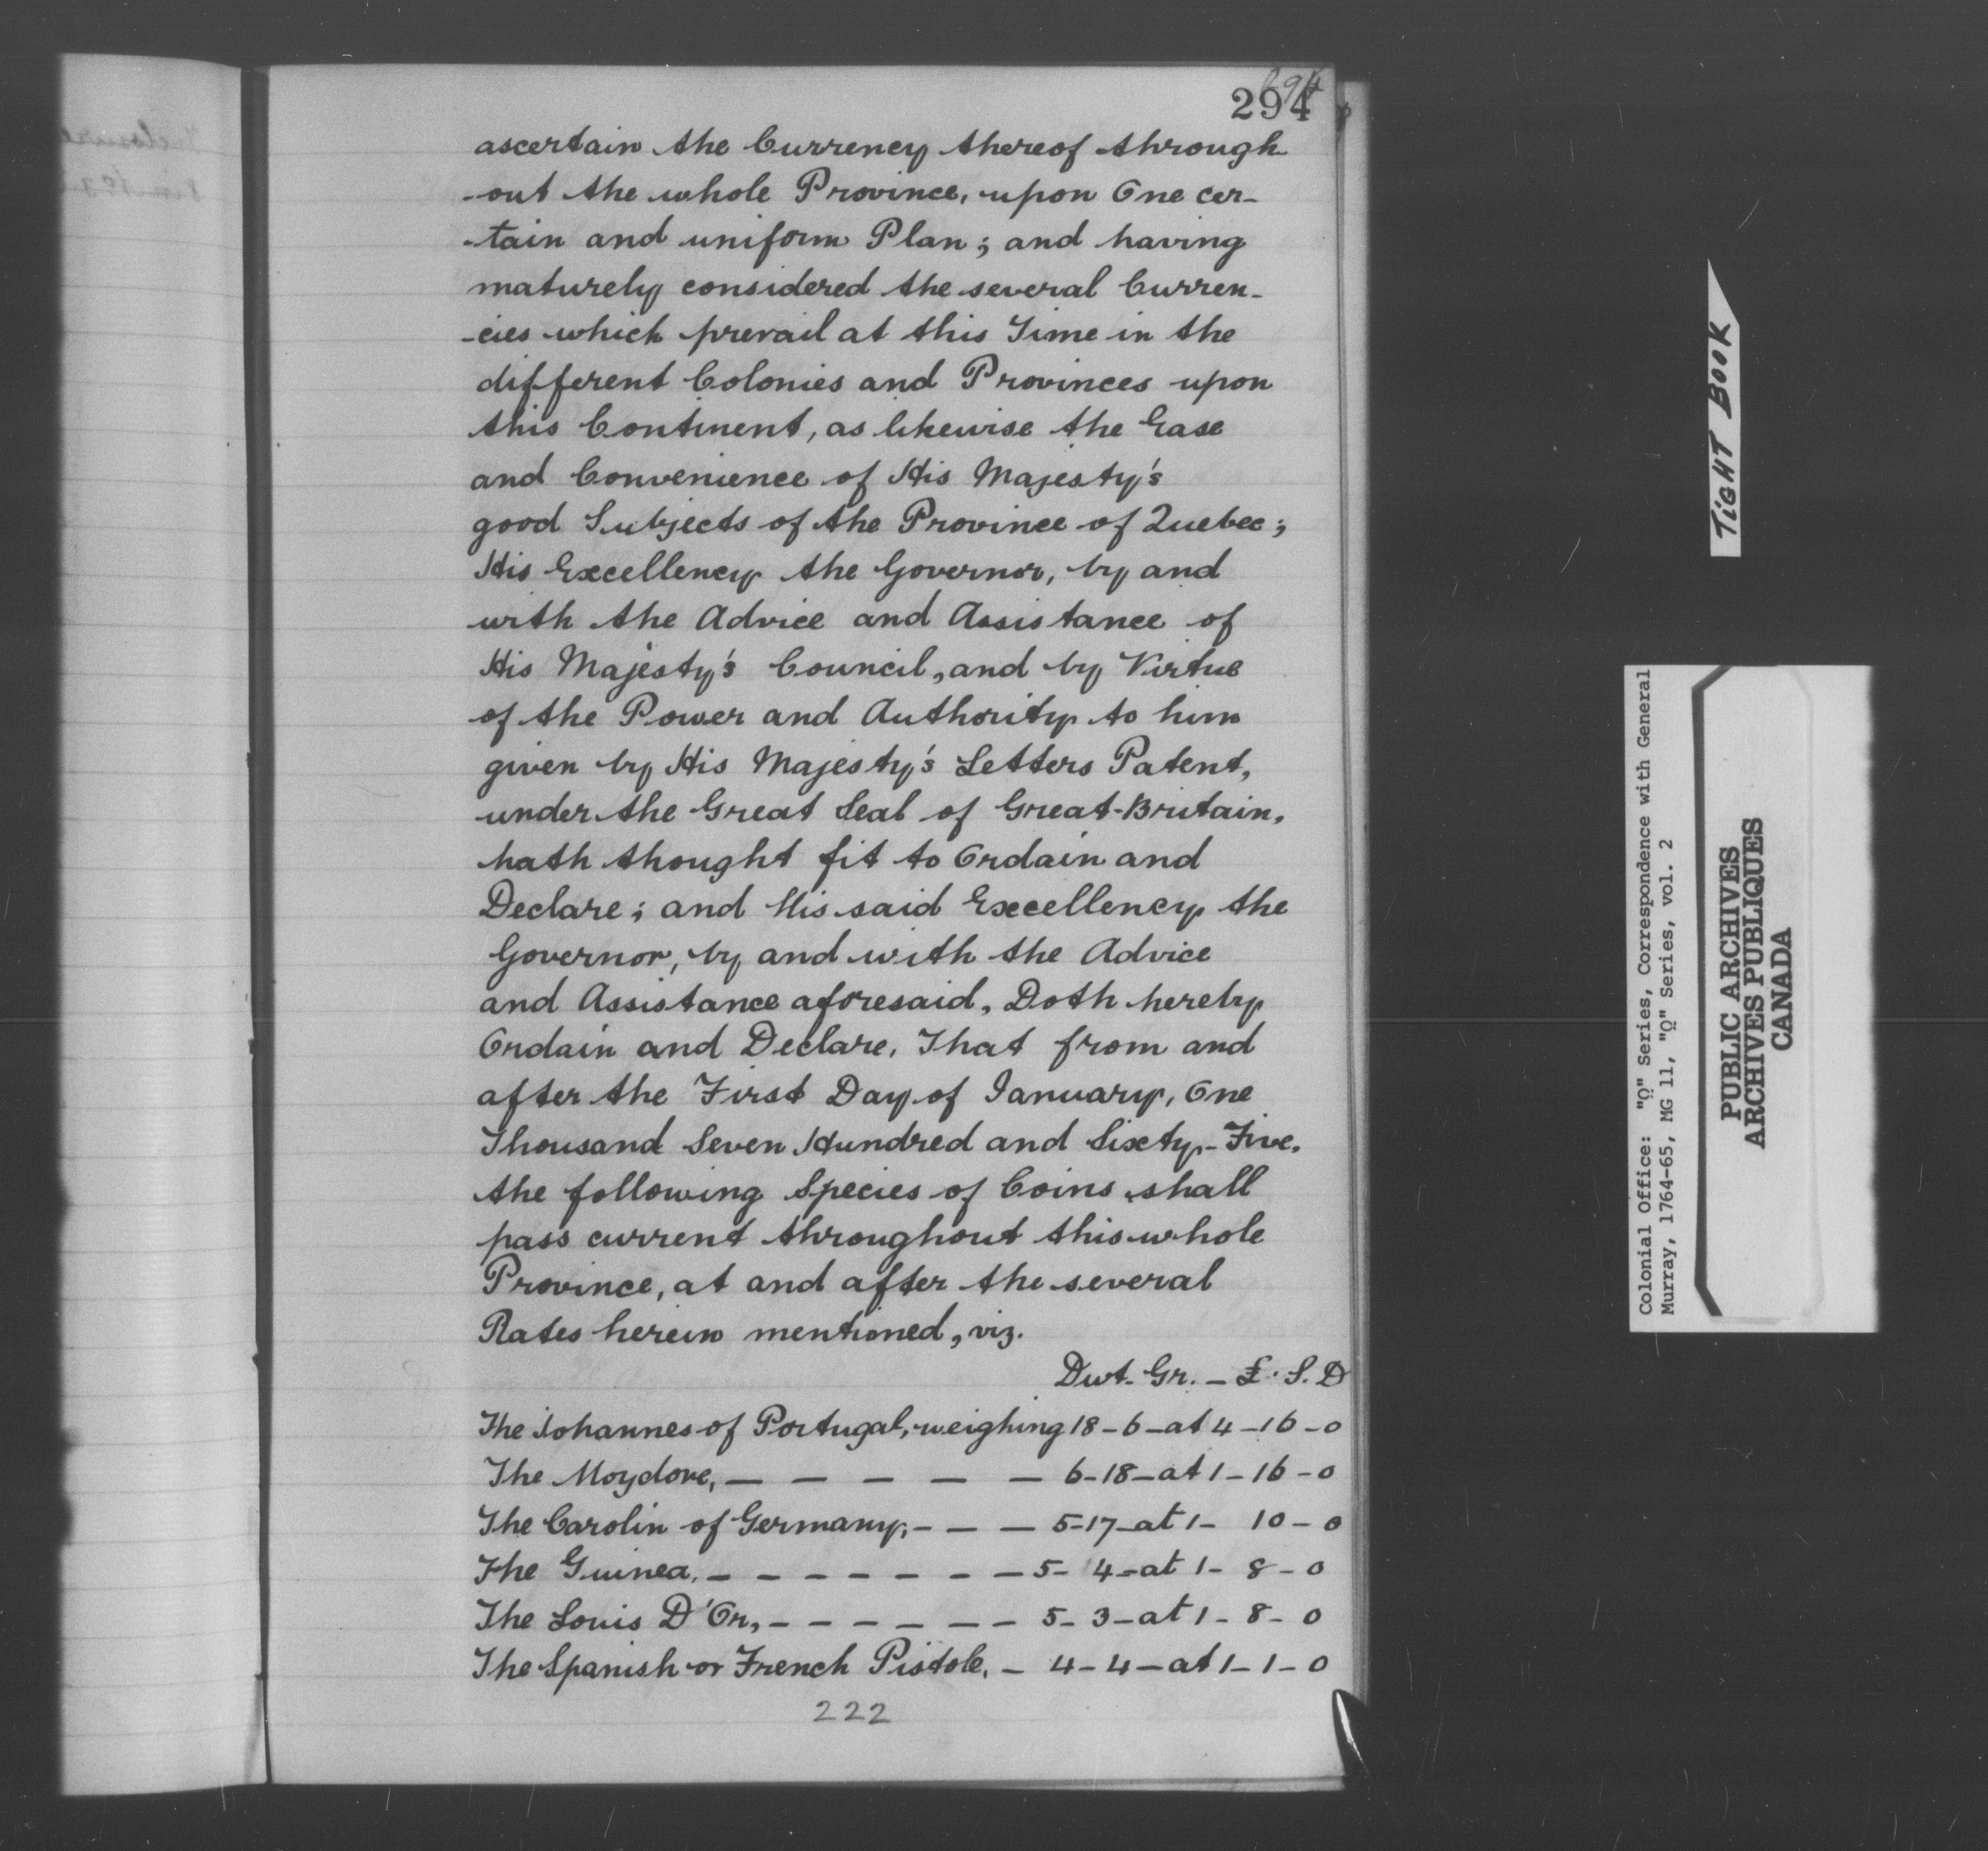 294
ascertain the Currency thereof through
-out the whole Province, upon One cer-
-tain and uniform Plan; and having
maturely considered the several Curren-
-cies which prevail at this Time in the
different Colonies and Provinces upon
this Continent, as likewise the Ease
and Convenience of His Majesty's
good Subjects of the Province of Quebec;
His Excellency the Governor, by and
with the Advice and Assistance of
His Majesty's Council, and by Virtue
of the Power and Authority to him
given by His Majesty's Letters Patent,
under the Great Seal of Great-Britain,
hath thought fit to Ordain and
Declare; and His said Excellency the
Governor, by and with the Advice
and Assistance aforesaid, Doth hereby
Ordain and Declare, That from and
after the First Day of January, One
Thousand Seven Hundred and Sixty-Five,
the following Species of Coins shall
pass current throughout this whole
Province, at and after the several
Rates herein mentioned, viz.
Dwt. Gr. - £. S. D
The Johannes of Portugal, weighing 18-6-at 4-16-0
The Moydore, - - - - - 6-18-at 1-16-0
The Carolin of Germany, - - - 5-17-at 1- 10-0
The Guinea, - - - - - - - 5- 4-at 1- 8-0
The Louis D'Or, - - - - - - 5- 3-at 1- 8- 0
The Spanish or French Pistole, - 4-4-at 1-1-0
222
TIGHT BOOK
Colonial Office: "Q" Series, Correspondence with General
Murray, 1764-65, MG 11, "Q" Series, vol. 2
PUBLIC ARCHIVES
ARCHIVES PUBLIQUES
CANADA